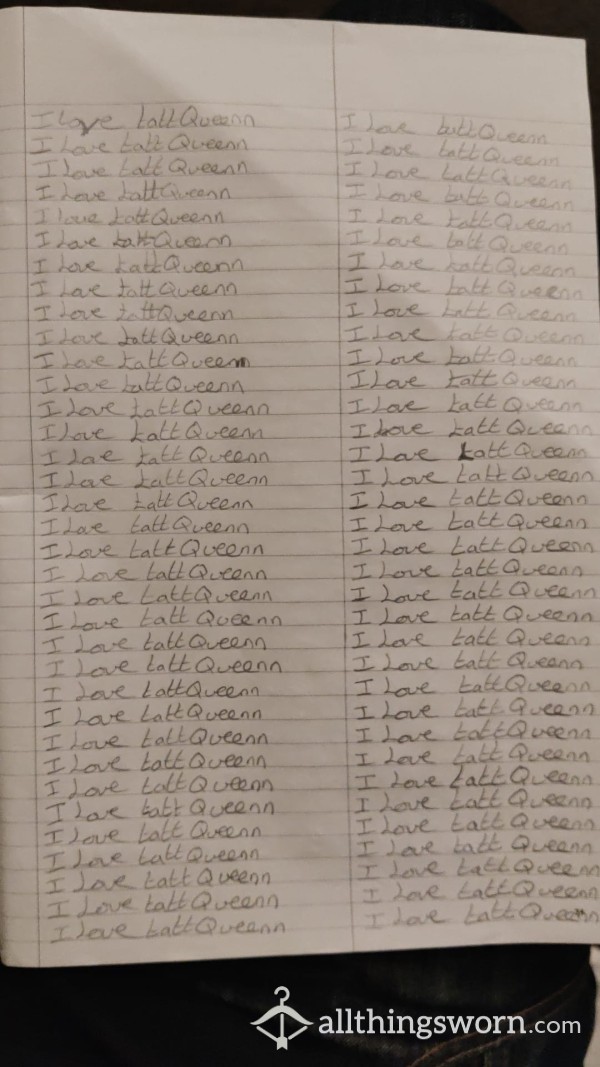 I Love tattQueenn
I Love tattQueenn
I Love tattQueenn
I Love tattQueenn
I Love tattQueenn
I Love tattQueenn
I Love tattQueenn
I Love tattQueenn
I Love tattQueenn
I Love tattQueenn
I Love tattQueenn
I Love tattQueenn
I Love tattQueenn
I Love tattQueenn
I Love tattQueenn
I Love tattQueenn
I Love tattQueenn
I Love tattQueenn
I Love tattQueenn
I Love tattQueenn
I Love tattQueenn
I Love tattQueenn
I Love tattQueenn
I Love tattQueenn
I Love tattQueenn
I Love tattQueenn
I Love tattQueenn
I Love tattQueenn
I Love tattQueenn
I Love tattQueenn
I Love tattQueenn
I Love tattQueenn
I Love tattQueenn
I Love tattQueenn
I Love tattQueenn
I Love tattQueenn
I Love tattQueenn
I Love tattQueenn
I Love tattQueenn
I Love tattQueenn
I Love tattQueenn
I Love tattQueenn
I Love tattQueenn
I Love tattQueenn
I Love tattQueenn
I Love tattQueenn
I Love tattQueenn
I Love tattQueenn
I Love tattQueenn
I Love tattQueenn
I Love tattQueenn
I Love tattQueenn
I Love tattQueenn
I Love tattQueenn
I Love tattQueenn
I Love tattQueenn
I Love tattQueenn
I Love tattQueenn
I Love tattQueenn
I Love tattQueenn
I Love tattQueenn
I Love tattQueenn
I Love tattQueenn
I Love tattQueenn
I Love tattQueenn
I Love tattQueenn
I Love tattQueenn
I Love tattQueenn
I Love tattQueenn
I Love tattQueenn
allthingsworn.com